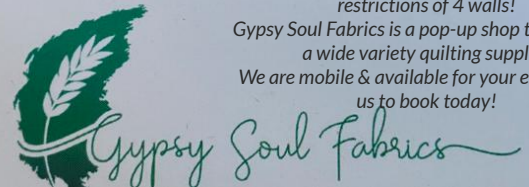 restrictions of 4 walls!
Gypsy Soul Fabrics is a pop-up shop
a wide variety quilting
We are mobile & available for your
us to book today!
Gypsy Soul Fabrics